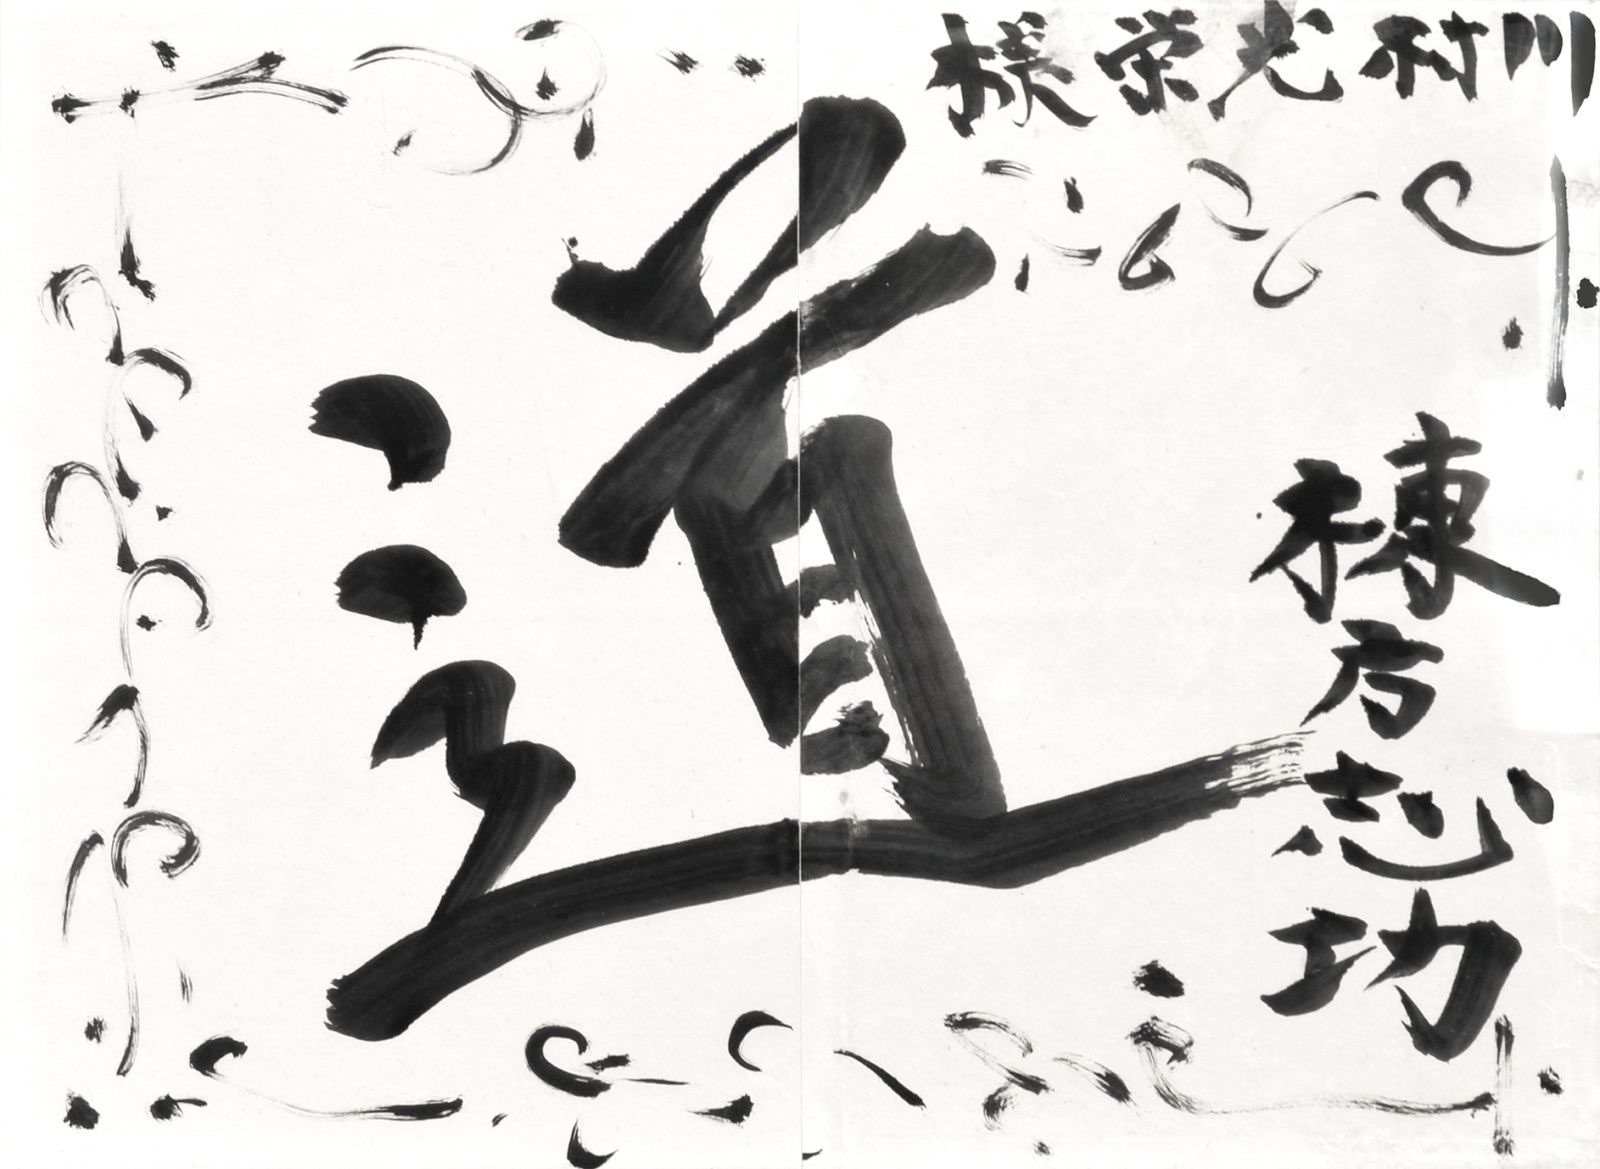 川村光栄様
道
棟方志功